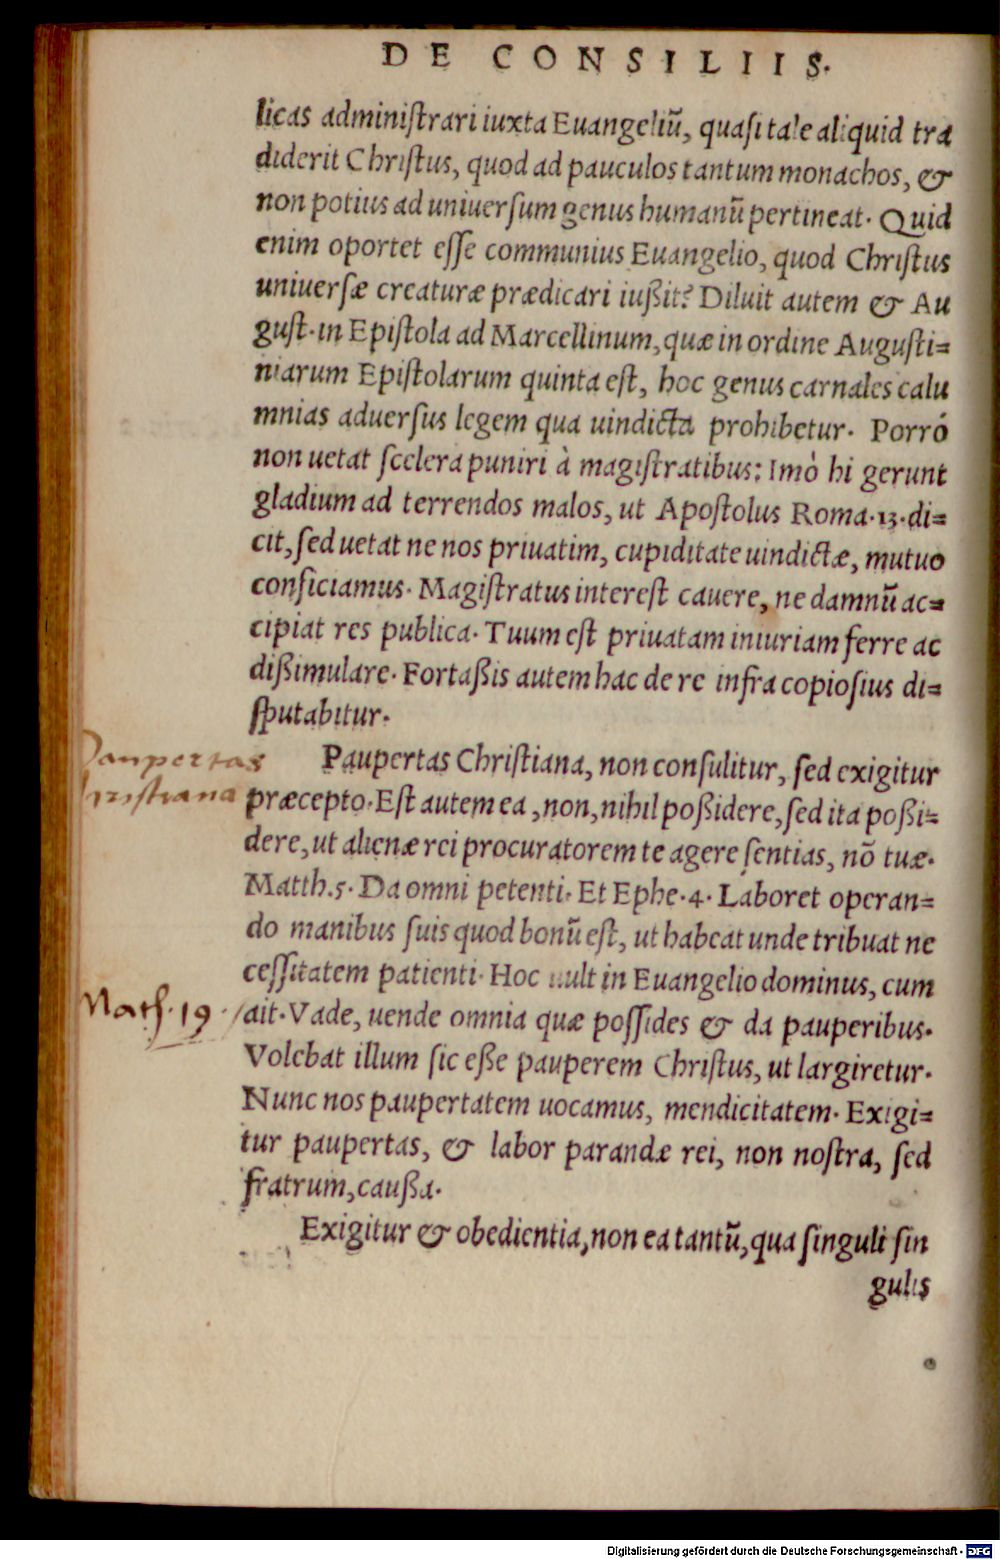 DE CONSILIIS.
licas adminiſtrari iuxta Euangeliũ, quaſi tale aliquid tra
diderit Chriſtus, quod ad pauculos tantum monachos, &
non potius ad uniuerſum genus humanũ pertineat. Quid
enim oportet eſſe communius Euangelio, quod Chriſtus
uniuerſæ creaturæ prædicari iußit? Diluit autem & Au
guſt. in Epiſtola ad Marcellinum, quæ in ordine Auguſti=
niarum Epiſtolarum quinta eſt, hoc genus carnales calu
mnias aduerſus legem qua uindicta prohibetur. Porró
non uetat ſcelera puniri à magiſtratibus: Imò hi gerunt
gladium ad terrendos malos, ut Apoſtolus Roma.13.di=
cit, ſed uetat ne nos priuatim, cupiditate uindictæ, mutuo
conficiamus. Magiſtratus intereſt cauere, ne damnũ ac=
cipiat res publica. Tuum eſt priuatam iniuriam ferre ac
dißimulare. Fortaßis autem hac de re infra copioſius di=
ſputabitur.
Paupertas Chriſtiana, non conſulitur, ſed exigitur
Paupertas
præcepto. Eſt autem ea, non, nihil poßidere, ſed ita poßi=
christiana
dere, ut alienæ rei procuratorem te agere ſentias, nõ tuæ.
Matth.5. Da omni petenti. Et Ephe.4. Laboret operan=
do manibus ſuis quod bonũ eſt, ut habeat unde tribuat ne
ceſſitatem patienti. Hoc uult in Euangelio dominus, cum
Math. 19.
ait. Vade, uende omnia quæ poſſides & da pauperibus.
Volebat illum ſic eße pauperem Chriſtus, ut largiretur.
Nunc nos paupertatem uocamus, mendicitatem. Exigi=
tur paupertas, & labor parandæ rei, non noſtra, ſed
fratrum, caußa.
Exigitur & obedientia, non ea tantũ, qua ſinguli ſin
gulis
Digitalisierung gefördert durch die Deutsche Forschungsgemeinschaft - DFG